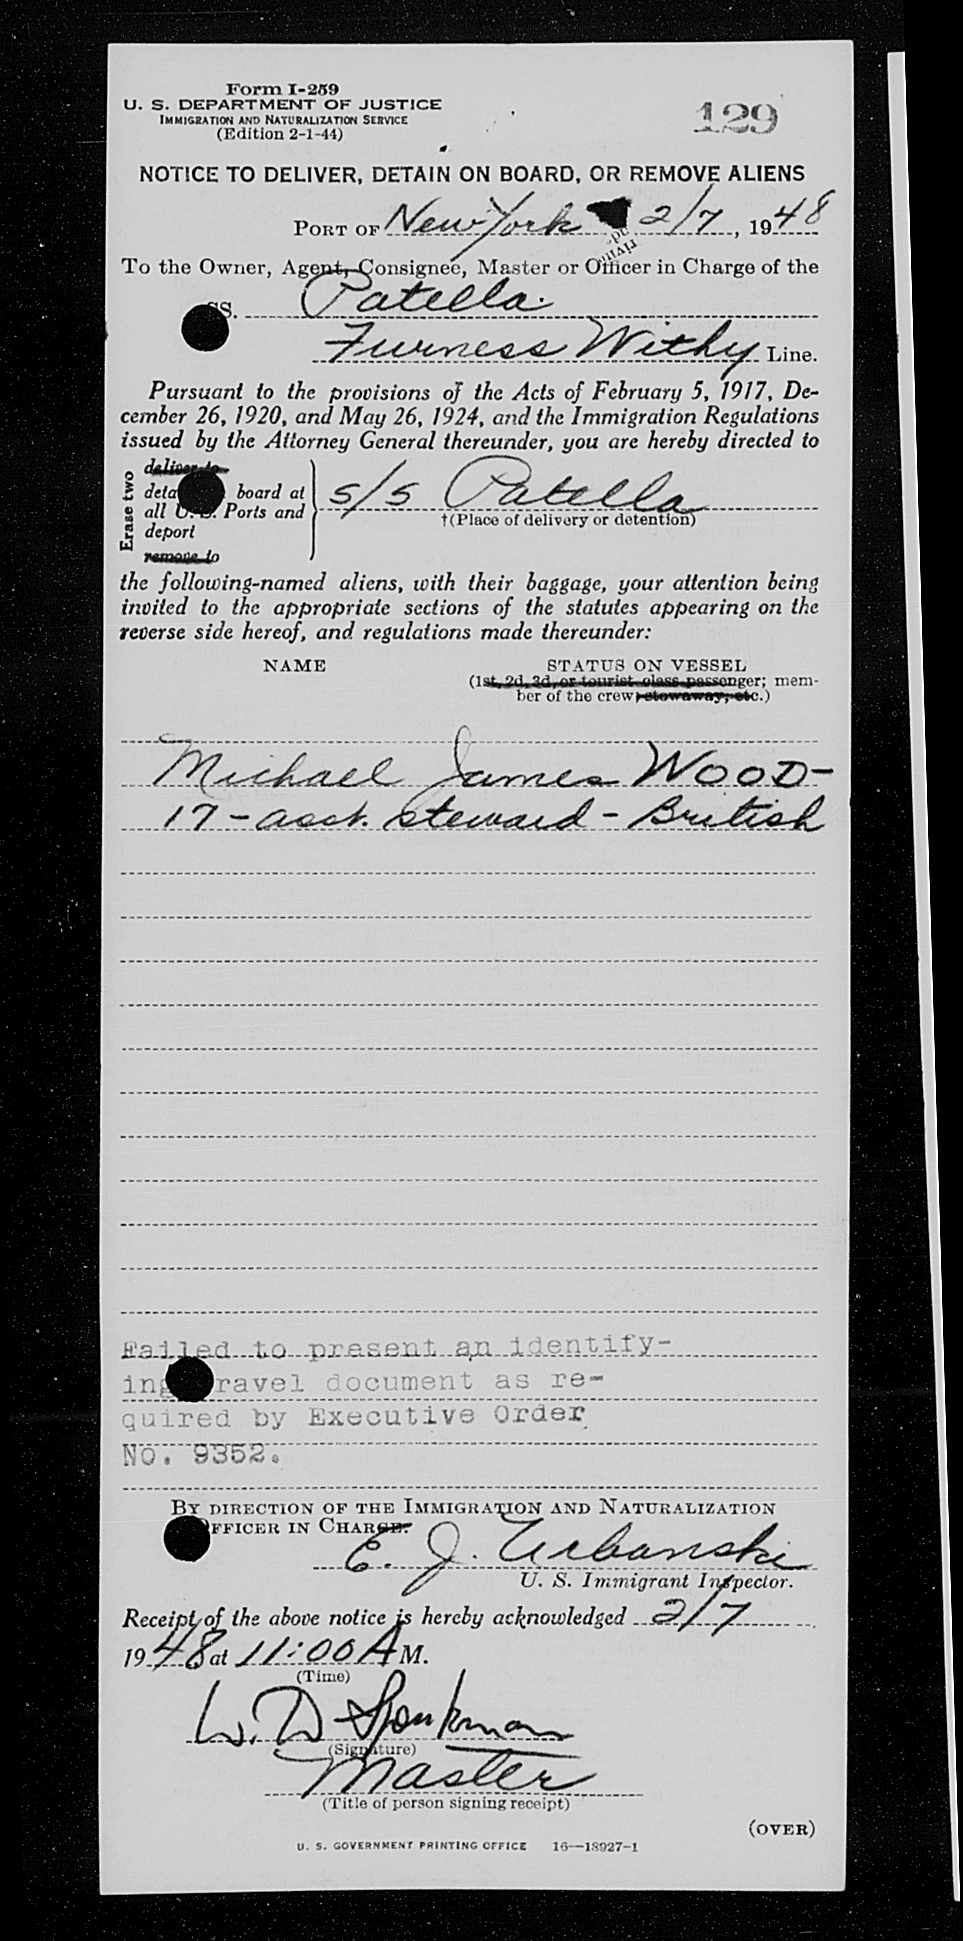 Form I-259
U. S. DEPARTMENT OF JUSTICE
IMMIGRATION AND NATURALIZATION SERVICE
(Edition 2-1-44)
129
NOTICE TO DELIVER, DETAIN ON BOARD, OR REMOVE ALIENS
PORT OF New York 2/7, 1948
To the Owner, Agent, Consignee, Master or Officer in Charge of the
SS. Patella
Furness Withy Line.
Pursuant to the provisions of the Acts of February 5, 1917, De-
cember 26, 1920, and May 26, 1924, and the Immigration Regulations
issued by the Attorney General thereunder, you are hereby directed to
Erase two
deliver to
deta board at
all U.S. Ports and
deport
remove to
s/s Patella
†(Place of delivery or detention)
the following-named aliens, with their baggage, your attention being
invited to the appropriate sections of the statutes appearing on the
reverse side hereof, and regulations made thereunder:
NAME STATUS ON VESSEL
(1st, 2d, 3d, or tourist class passenger; mem-
ber of the crew; stowaway, etc.)
Michael James WOOD-
17 - asst. steward - British
Failed to present an identify-
ing travel document as re-
quired by Executive Order
No. 9352.
BY DIRECTION OF THE IMMIGRATION AND NATURALIZATION
OFFICER IN CHARGE:
E. J. Urbanski
U. S. Immigrant Inspector.
Receipt of the above notice is hereby acknowledged 2/7
1948 at 11:00 A M.
(Time)
W. D Spenkman
(Signature)
Master
(Title of person signing receipt)
(OVER)
U. S. GOVERNMENT PRINTING OFFICE 16—18927-1